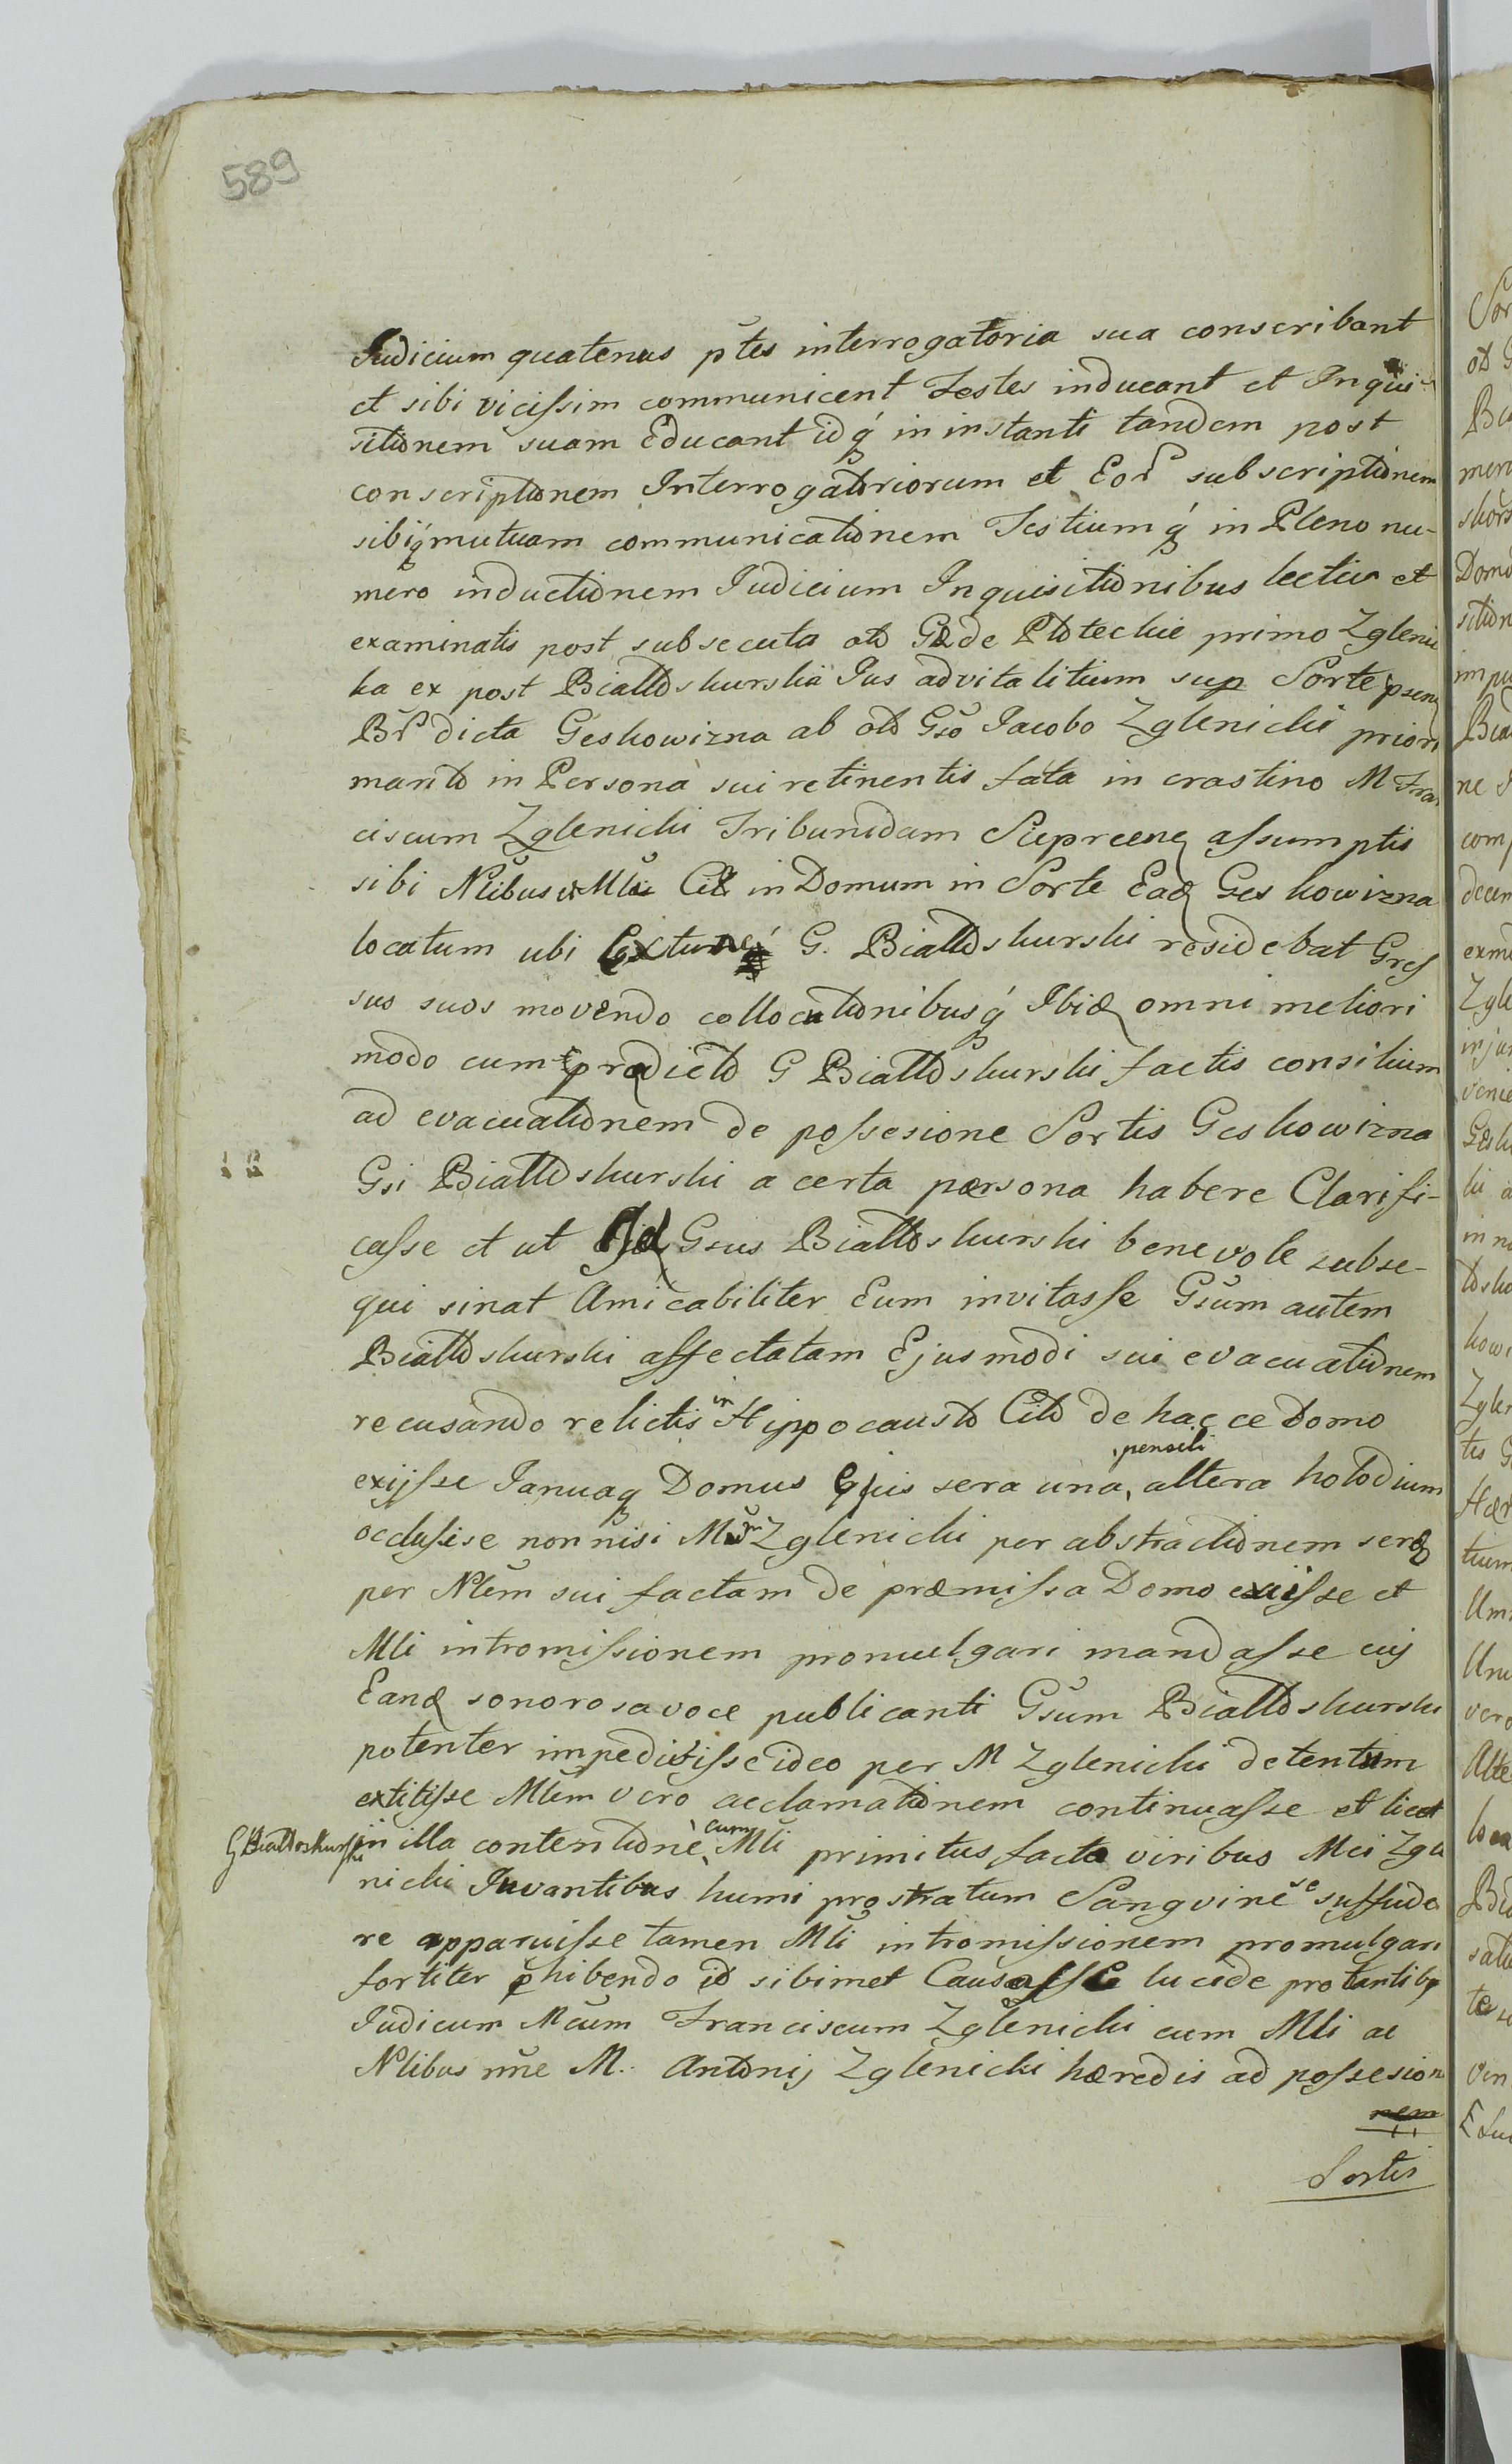 589
Judicium quatenus ptes interrogatoria sua conscribant
et sibi vicissim communicent Testes inducant et Inqui-
sitionem suam Educant idq́ in instanti tandem post
conscriptionem Interrogatoriorum et Eor subscriptionem
sibiq́ mutuam communicationem Testiumq́ in Pleno nu-
mero inductionem Judicium Inquisitionibus lectis et
examinatis post subsecuta olo Gde Plotechie primo Zgleni
ka ex post Bialloskurska Jus advitalitium sup Sorte
Br dicta Geskowizna ab olo Gso Jacobo Zglenicki priori
marito in Persona sui retinentis fata in crastino M Fran
ciscum Zglenicki Tribunidam Sieprcen assumptis
sibi Nlibus et Mli Cil in Domum in Sorte Ead Geskowizna
locatum ubi G. Bialloskurski residebat Gres
sus suos movendo collocutionibusq́ Ibid omni meliori
modo cum prædicto G Bialloskurski factis consilium
ad evacuationem de possesione Sortis Geskowizna
Gsi Bialloskurski a certa persona habere Clarifi-
casse et ut Id Gsus Bialloskurski benevole subse-
qui sinat Amicabiliter Eum invitasse Gsum autem
Bialloskurski affectatam Ejusmodi sui evacuationem
recusando relictis in Hippocausto Cito de hac ce Domo
exijsse Januaq Domus Ejus sera una, pensili altera holodium
occlusise non nisi Mm Zglenicki per abstractionem seræ
per Nlem sui factam de præmissa Domo exiisse et
Mli intromissionem promulgari mandasse cuj
Eand sonorosa voce publicanti Gsum Bialloskurski
potenter impedivisse ideo per M Zglenicki detentum
extitisse Mlem vero acclamationem continuasse et licet
G Bialloskurski in illa contentione cum Mli primitus facta viribus Mci Zgle
nicki Juvantibus humi prostratum Sangvine se suffude
re apparuisse tamen Mli intromissionem promulgari
fortiter phibendo id sibimet Causasse lucide protantibq
Judicum Mcum Franciscum Zglenicki cum Mli ac
Nlibus nne M. Antonij Zglenicki hæredis ad possesion
nem
Sortis